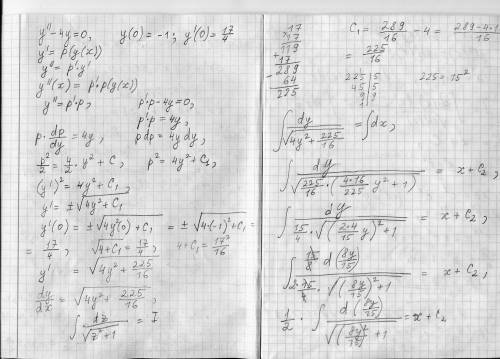 y'' - 4y = 0, y(0) = -1; y'(0) = 17/4
y' = p(y(x))
y'' = p'·y'
y''(x) = p'·p(y(x))
y'' = p'·p, p'·p - 4y = 0,
p'p = 4y,
p· dp/dy = 4y, pdp = 4y dy,
p²/2 = 4/2 · y² + C, p² = 4y² + C₁,
(y')² = 4y² + C₁
y' = ±√(4y² + C₁)
y'(0) = ±√(4y²(0) + C₁) = ±√(4·(-1)² + C₁) =
= 17/4, √(4 + C₁) = 17/4, 4 + C₁ = 17²/16
y' = √(4y² + 225/16)
dy/dx = √(4y² + 225/16),
∫ dz/√(z² + 1) = I
17
17
119
+ 17
289
- 64
225
C₁ = 289/16 - 4 = (289 - 4·1
= 225/16
225 | 5
45 | 5
9 | 9
1
225 = 15²
∫ dy/√(4y² + 225/16) = ∫ dx,
∫ dy/√(225/16 · (4·16/225 y² + 1)) = x + C₂,
∫ dy/(15/4 · √((2·4/15 y)² + 1)) = x + C₂,
d(8y/15)/√((8y/15)² + 1) = x + C₂,
1/2 · ∫ d(8y/15)/√((8y/15)² + 1) = x + C₂